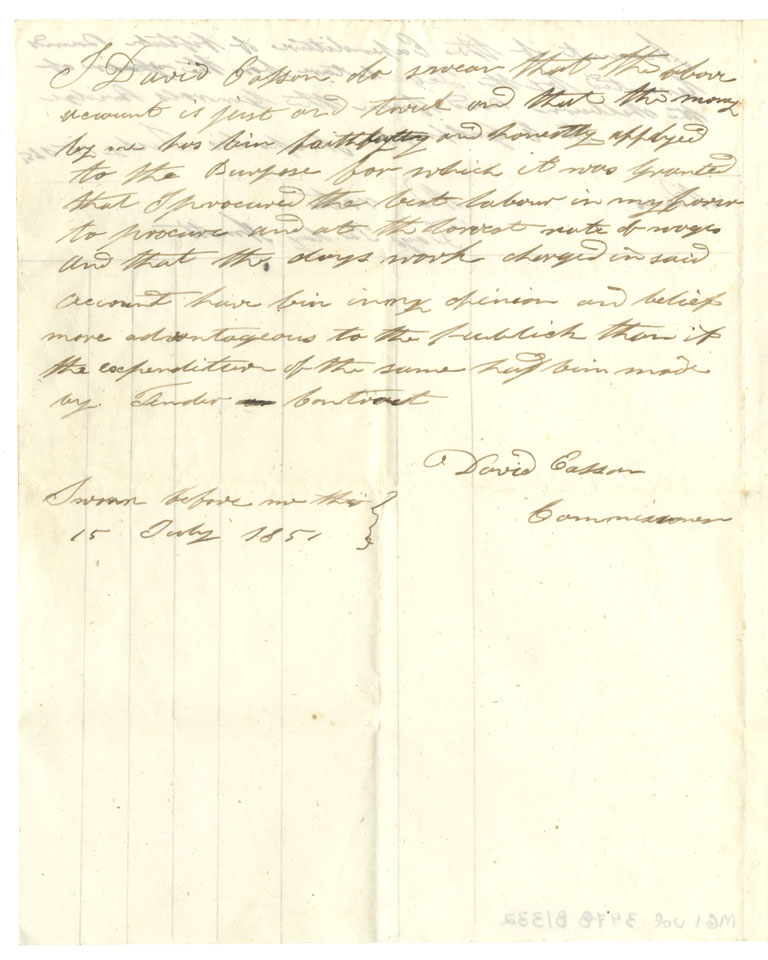 I David Easson do swear that the above
account is just and trueh and that the mony
by me has bin faithfully and honestly applyed
to the Purpose for which it was Granted
that I procured the best labour in my power
to procure and at the lowest rate of wages
and that the days work charged in said
account have bin in my opinion and belief
more advantageous to the publick than if
the expenditure of the same had bin made
by Tender Contract
David Easson
Commissioner
Sworn before me this
15 July 1851
MG1 vol 3478 B/332